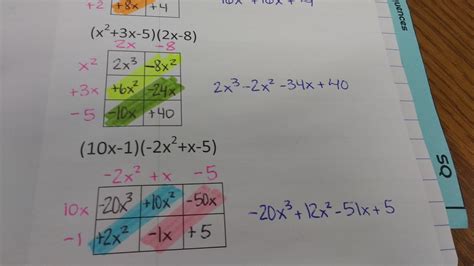 +2 +8x +4
(x²+3x-5)(2x-8)
2x -8
x² 2x³ -8x²
+3x +6x² -24x
-5 -10x +40
2x³ - 2x² - 34x + 40
(10x-1)(-2x²+x-5)
-2x² + x -5
10x -20x³ +10x² -50x
-1 +2x² -1x +5
-20x³ + 12x² - 51x + 5
SQ